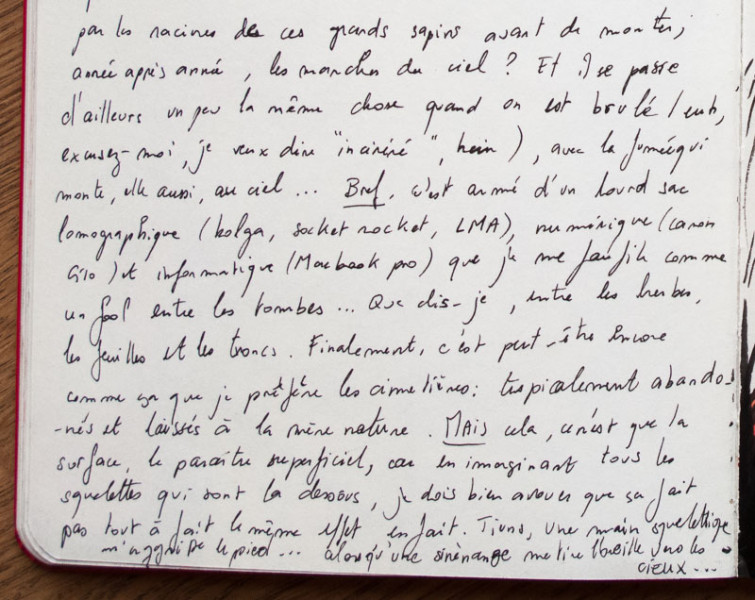 par les racines de ces grands sapins avant de monter,
année après année, les marches du ciel ? Et il se passe
d'ailleurs un peu la même chose quand on est brulé (euh,
excusez-moi, je veux dire "incinéré", hein), avec la fumée qui
monte, elle aussi, au ciel ... Bref, c'est armé d'un lourd sac
lomographique (holga, socket rocket, LMA), numérique (canon
G10) et informatique (Macbook pro) que je me faufile comme
un fool entre les tombes ... Que dis-je, entre les herbes,
les feuilles et les troncs. Finalement, c'est peut-être encore
comme ça que je préfère les cimetières : tropicalement abando
-nés et laissés à la mère nature. MAIS cela, ce n'est que la
surface, le paraître superficiel, car en imaginant tous les
squelettes qui sont la dessous, je dois bien avouer que ça fait
pas tout à fait le même effet en fait. Tiens, une main squelettique
m'aggripe le pied ... alors qu'une sirène ange me tire l'oreille vers les
cieux ...